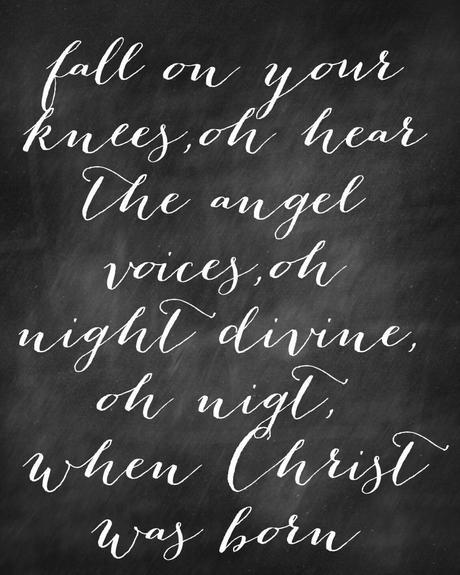 fall on your
knees,oh hear
The angel
voices,oh
night divine,
oh nigt,
when Christ
was born